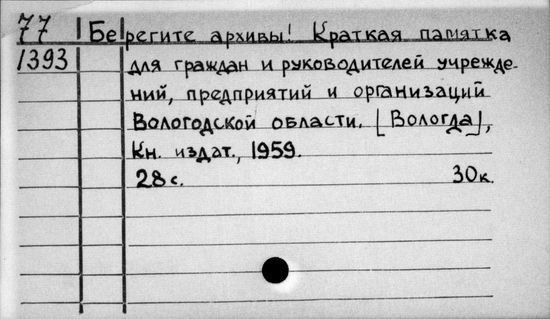 77 Берегите архивы! Краткая памятка
1393 для граждан и руководителей учрежде-
ний, предприятий и организаций
Вологодской области. [Вологда],
Кн. издат., 1959.
28 с. 30 к.